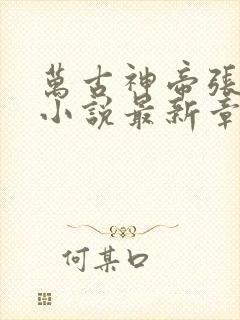 萬古神帝張
小說最新章
何某口